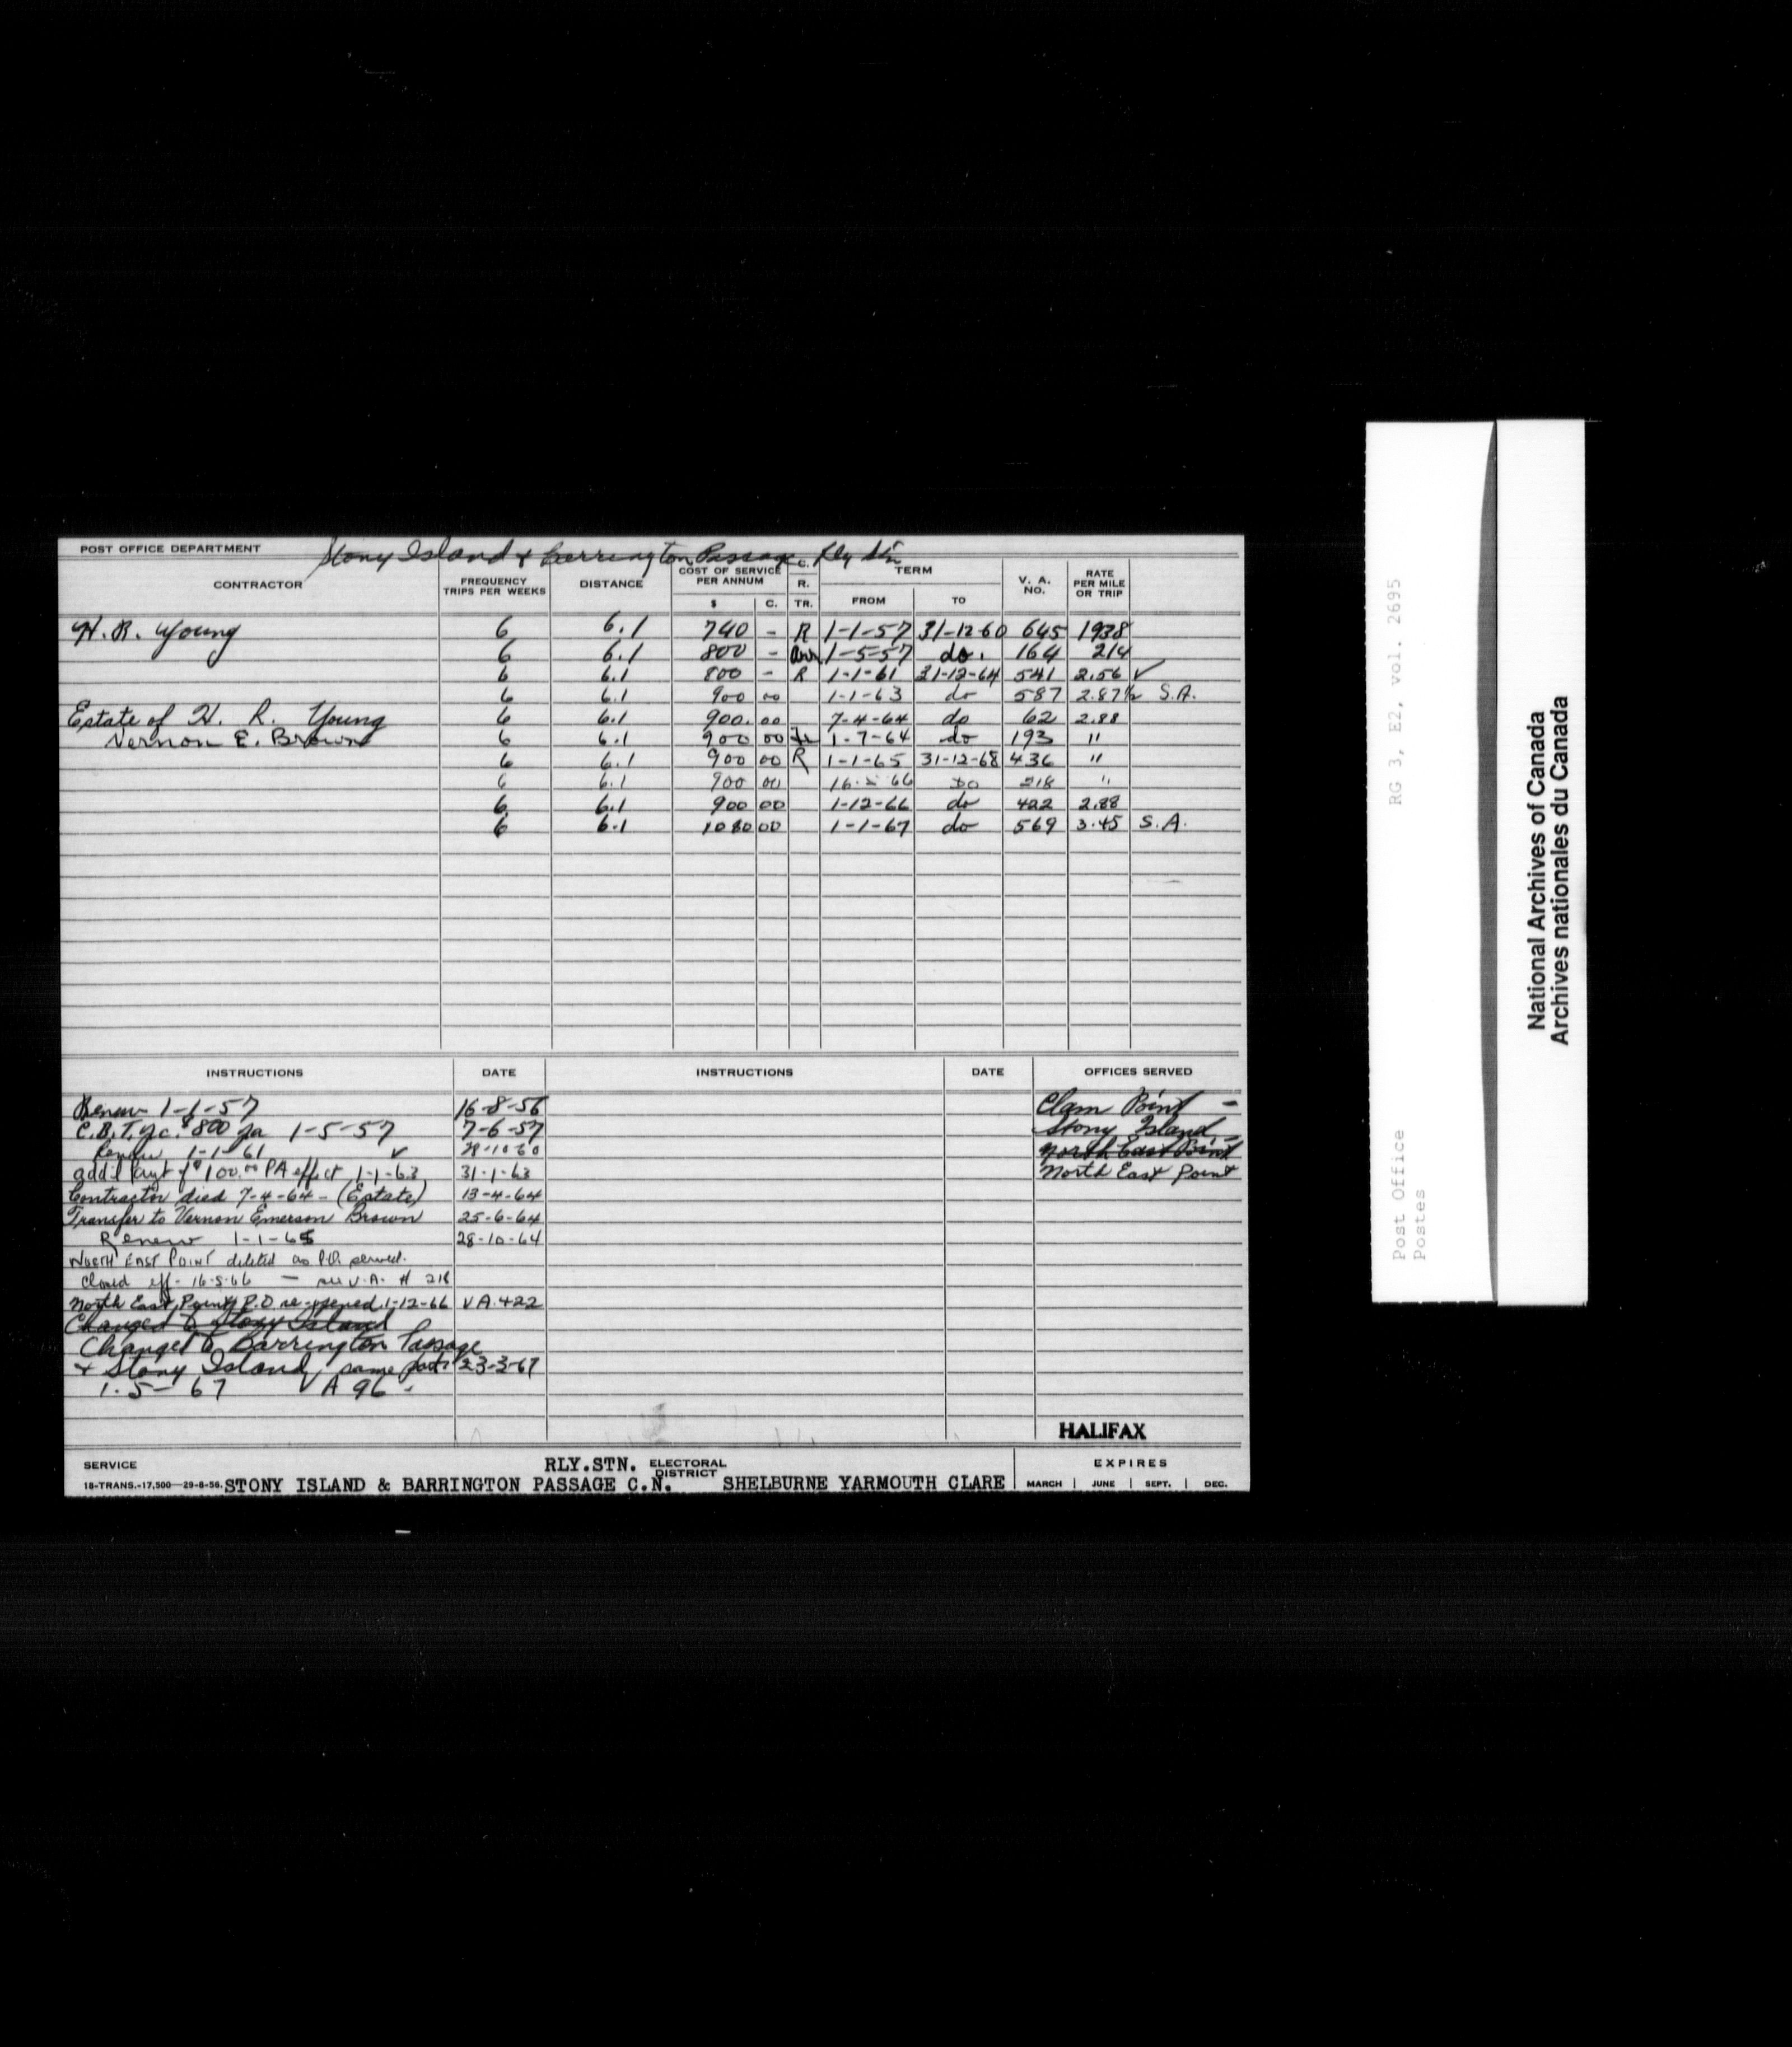 POST OFFICE DEPARTMENT Stony Island & Barrington Passage Rly Stn
CONTRACTOR FREQUENCY TRIPS PER WEEKS DISTANCE COST OF SERVICE PER ANNUM $ C. C. R. TR. TERM FROM TO V. A. NO. RATE PER MILE OR TRIP
H. R. Young 6 6.1 740 - R 1-1-57 31-12-60 645 1938
6 6.1 800 - 1-5-57 do. 164 214
6 6.1 800 - R 1-1-61 31-12-64 541 2.56 ✓
6 6.1 900 00 1-1-63 do 587 2.87½ S.A.
Estate of H. R. Young 6 6.1 900. 00 7-4-64 do 62 2.88
Vernon E. Brown 6 6.1 900 00 Tr 1-7-64 do 193 "
6 6.1 900 00 R 1-1-65 31-12-68 436 "
6 6.1 900 00 16-5-66 DO 218 "
6 6.1 900 00 1-12-66 do 422 2.88
6 6.1 1080 00 1-1-67 do 569 3.45 S.A.
INSTRUCTIONS DATE INSTRUCTIONS DATE OFFICES SERVED
Renew 1-1-57 16-8-56 Clam Point -
C.B.T. $800 pa 1-5-57 7-6-57 Stony Island -
Renew 1-1-61 ✓ 28-10-60 North East Point
add'l payt of $100.00 PA effect 1-1-63 31-1-63 North East Point
Contractor died 7-4-64 - (Estate) 13-4-64
Transfer to Vernon Emerson Brown 25-6-64
Renew 1-1-65 28-10-64
NORTH EAST POINT deleted as P.O. served.
Closed eff - 16-5-66 — see V.A. # 218
North East Point P.O. re-opened 1-12-66 VA.422
Changed to Stony Island
Changed to Barrington Passage
& Stony Island, same 23-3-67
1-5-67 VA 96 -
HALIFAX
SERVICE RLY.STN. ELECTORAL DISTRICT EXPIRES
18-TRANS.-17,500—29-8-56. STONY ISLAND & BARRINGTON PASSAGE C.N. SHELBURNE YARMOUTH CLARE MARCH | JUNE | SEPT. | DEC.
RG 3, E2, vol. 2695
Post Office
Postes
National Archives of Canada
Archives nationales du Canada